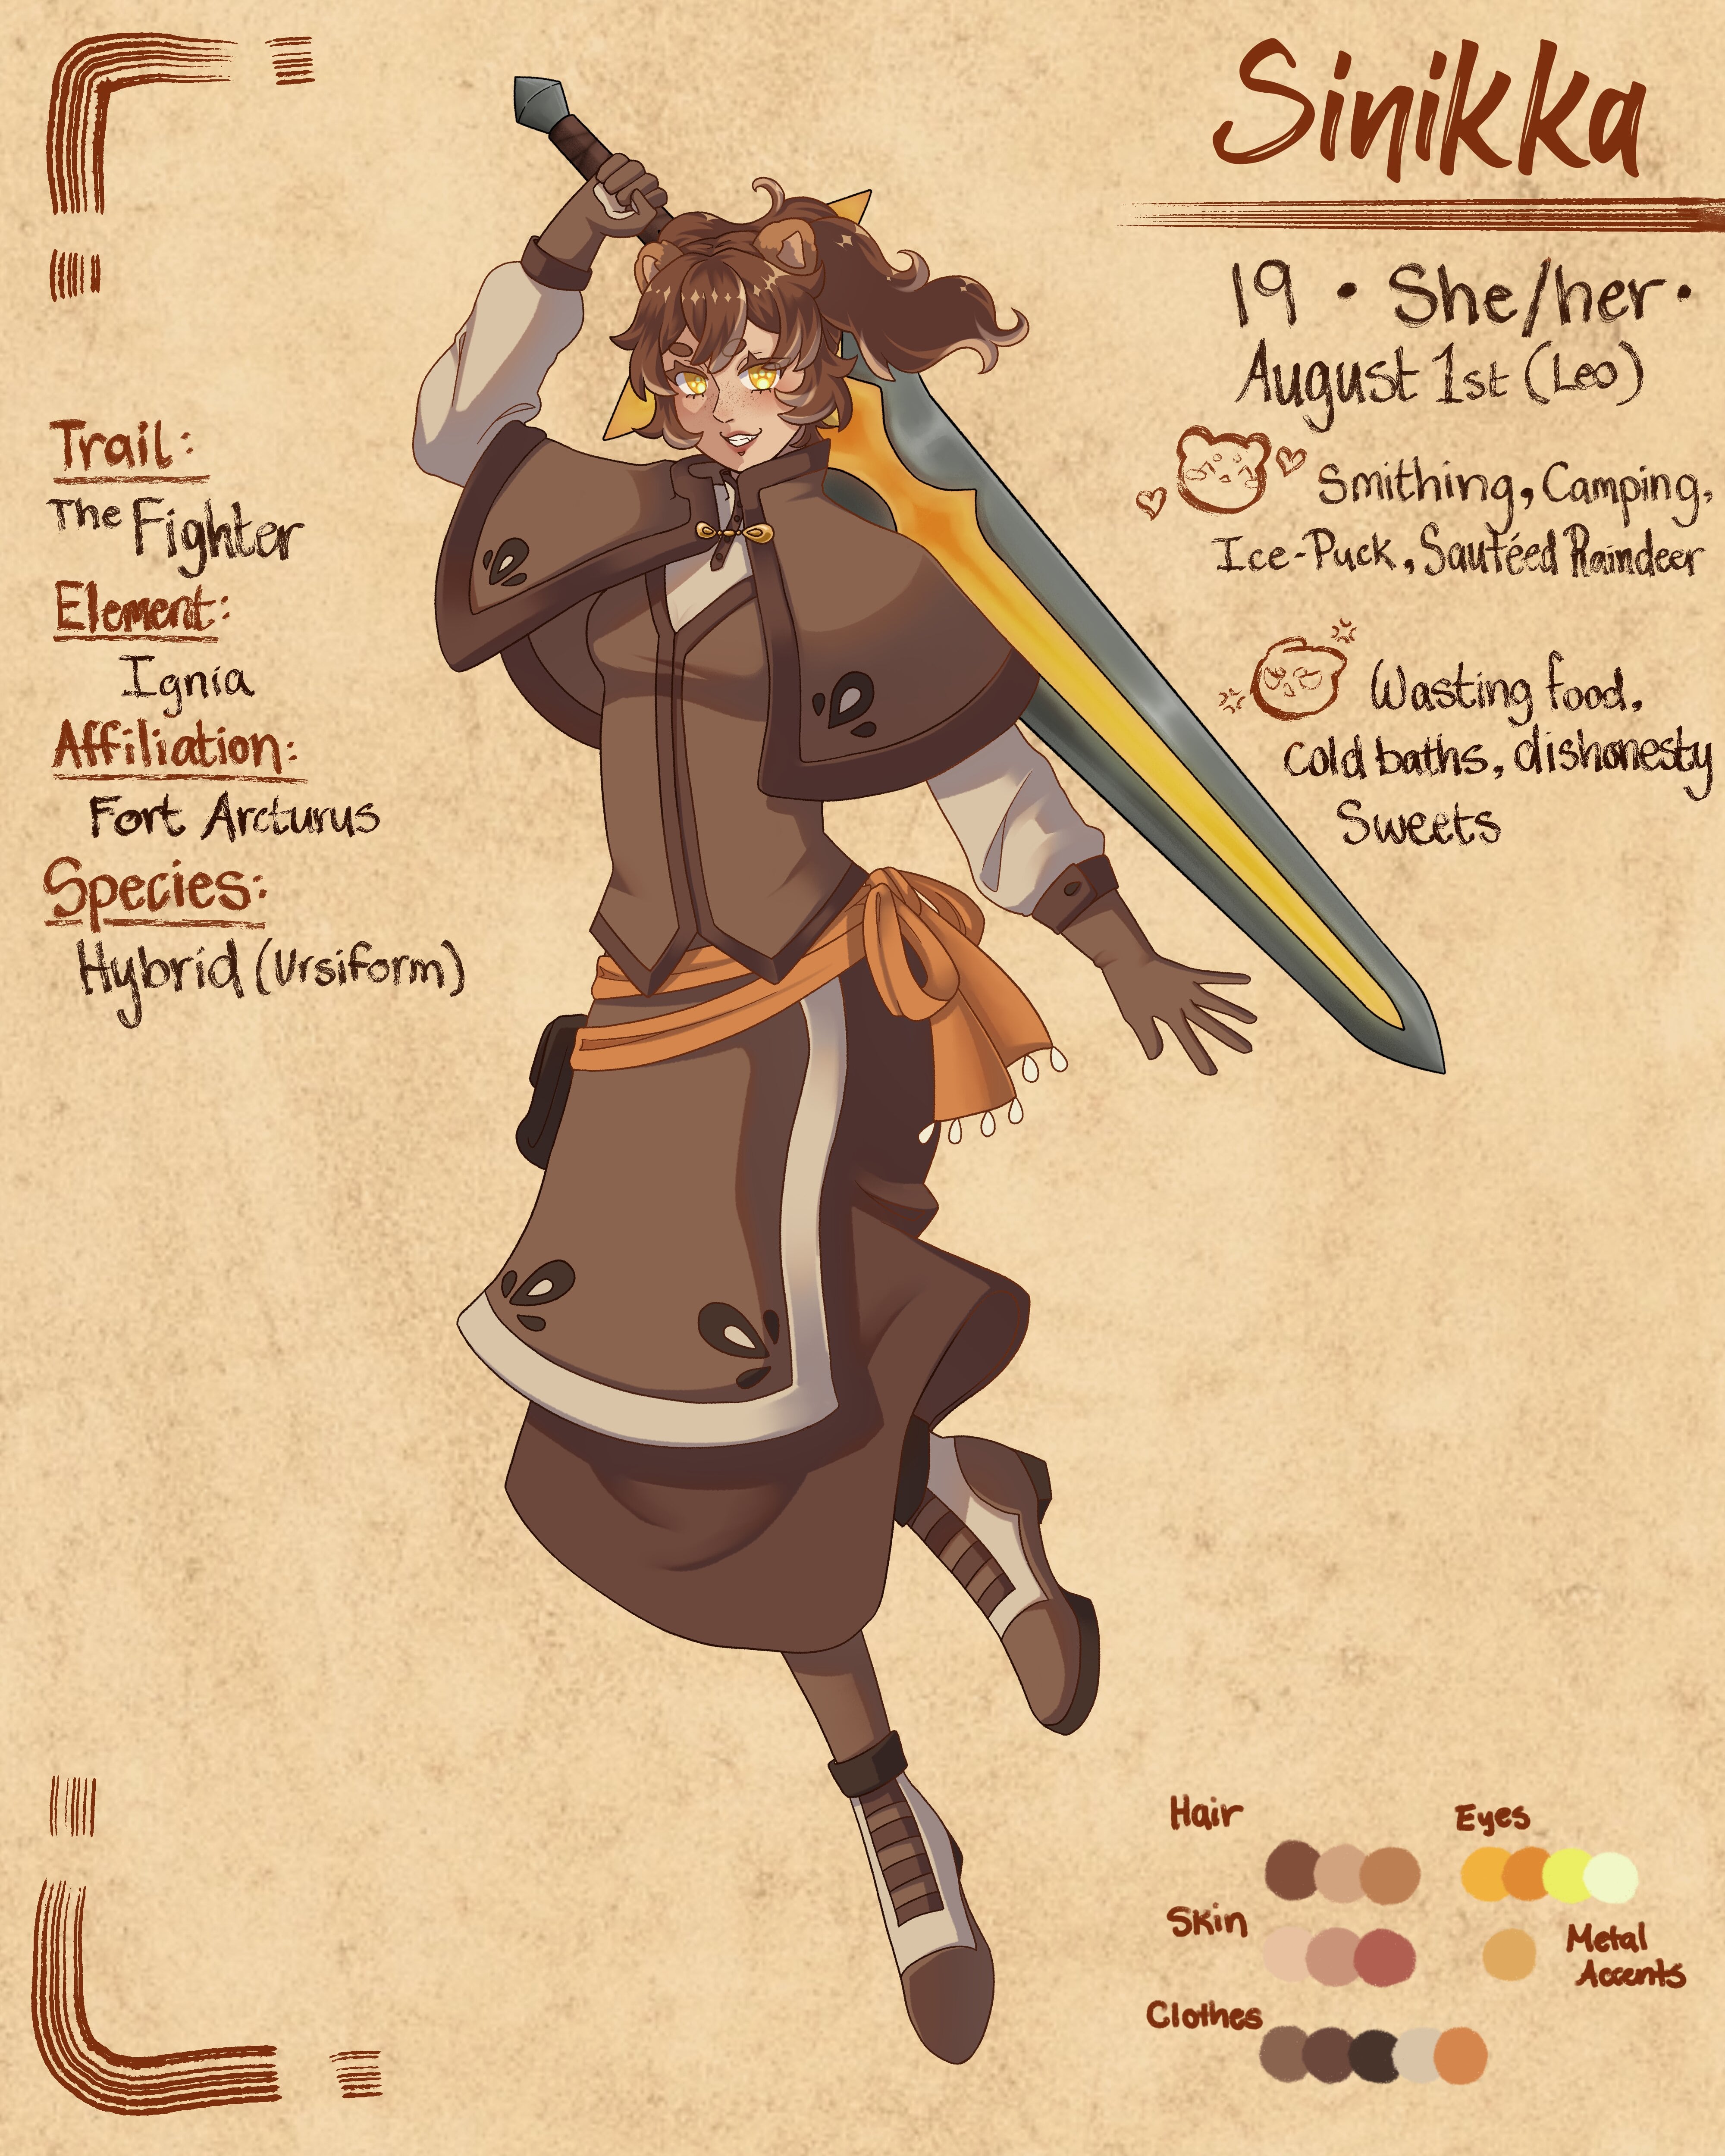 Sinikka
19 • She/her •
August 1st (Leo)
Smithing, Camping,
Ice-Puck, Sautéed Raindeer
Wasting food,
Cold baths, dishonesty
Sweets
Trail:
The Fighter
Element:
Ignia
Affiliation:
Fort Arcturus
Species:
Hybrid (Ursiform)
Hair
Eyes
Skin
Metal
Accents
Clothes